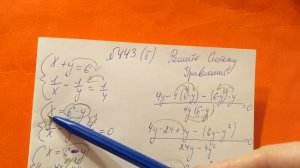 №443 (б) Решите систему
уравнений
{ x + y = 6
1/x - 1/y = 1/4
{ x = 6 - y
= 0
4y - 4(6-y) - (6-y)·y
4y(6-y)
4y - 24 + 4y - (6y - y²) = 0
24y - 4y²
{ x = 6 - y